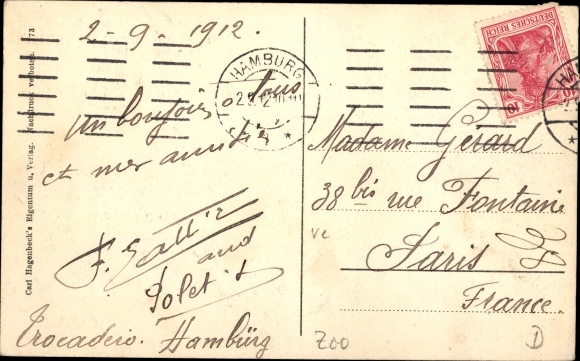 2-9-1912.
un bonjour a tous
et mes amis
F. Galli
and
Polet
Trocadero. Hambürg
Carl Hagenbeck's Eigentum u. Verlag. Nachdruck verboten. 73
HAMBURG
2.9.12.
DEUTSCHES REICH
10
Madame Gérard
38 bis rue Fontaine
Paris
France.
Zoo
D